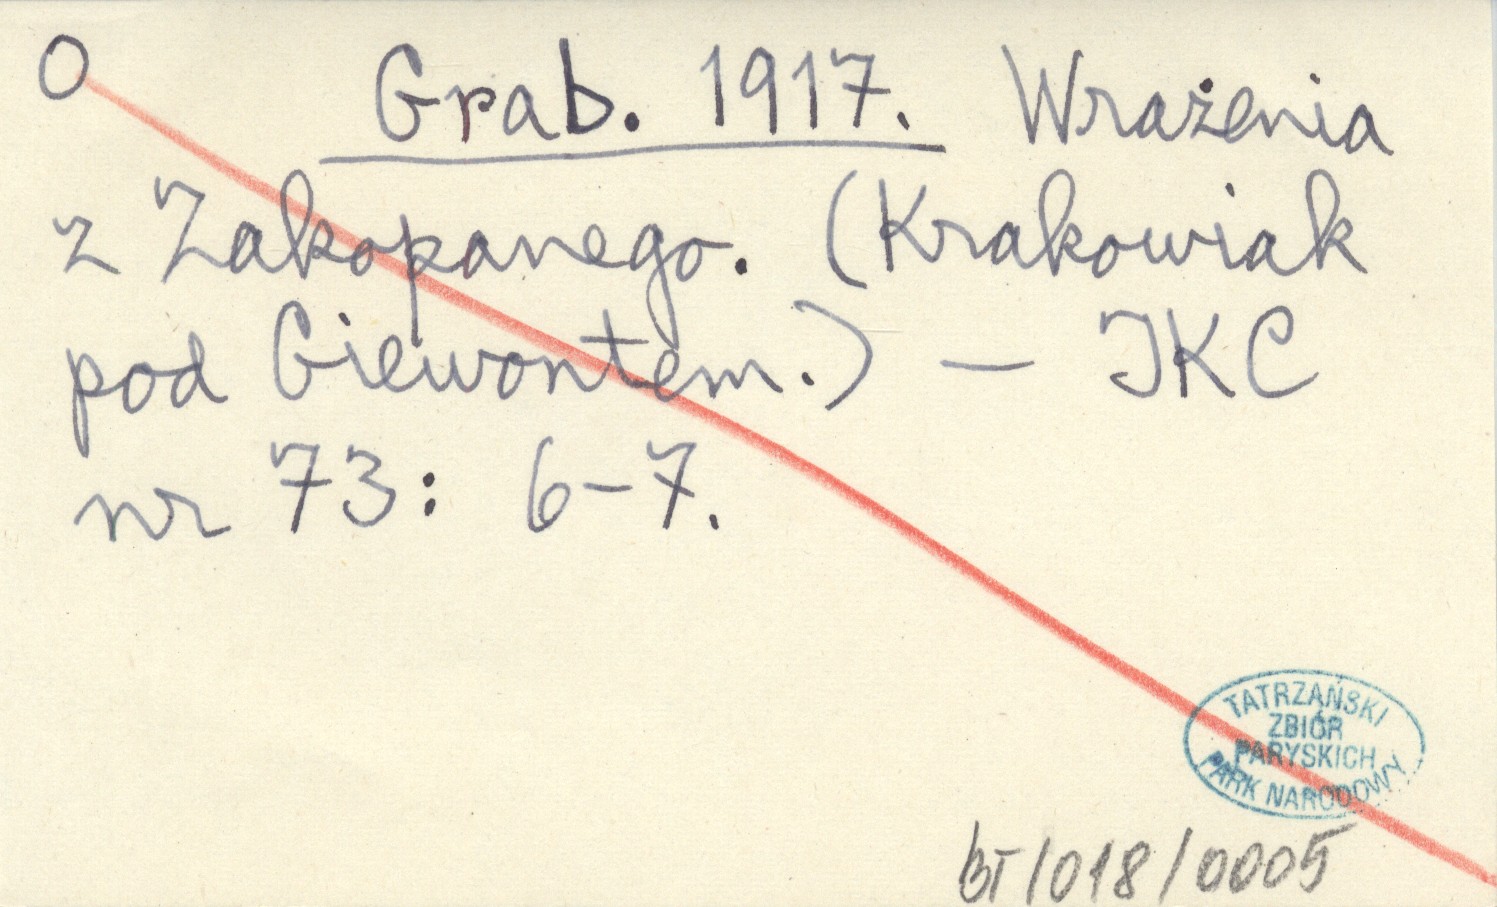 O Grab. 1917. Wrażenia
z Zakopanego. (Krakowiak
pod Giewontem.) — JKC
nr 73: 6-7.
TATRZAŃSKI
ZBIÓR
PARYSKICH
PARK NARODOWY
BT/018/0005